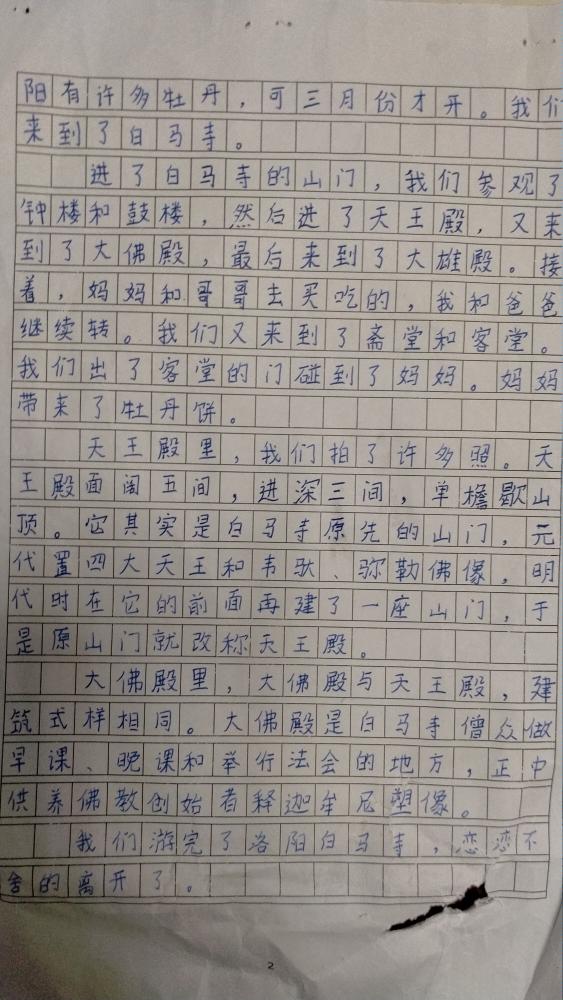 阳有许多牡丹，可三月份才开。我们
来到了白马寺。
进了白马寺的山门，我们参观了
钟楼和鼓楼，然后进了天王殿，又来
到了大佛殿，最后来到了大雄殿。接
着，妈妈和哥哥去买吃的，我和爸爸
继续转。我们又来到了斋堂和客堂。
我们出了客堂的门碰到了妈妈。妈妈
带来了牡丹饼。
天王殿里，我们拍了许多照。天
王殿面阔五间，进深三间，单檐歇山
顶。它其实是白马寺原先的山门，元
代置四大天王和韦驮、弥勒佛像，明
代时在它的前面再建了一座山门，于
是原山门就改称天王殿。
大佛殿里，大佛殿与天王殿，建
筑式样相同。大佛殿是白马寺僧众做
早课、晚课和举行法会的地方，正中
供养佛教创始者释迦牟尼塑像。
我们游完了洛阳白马寺，恋恋不
舍的离开了。
2